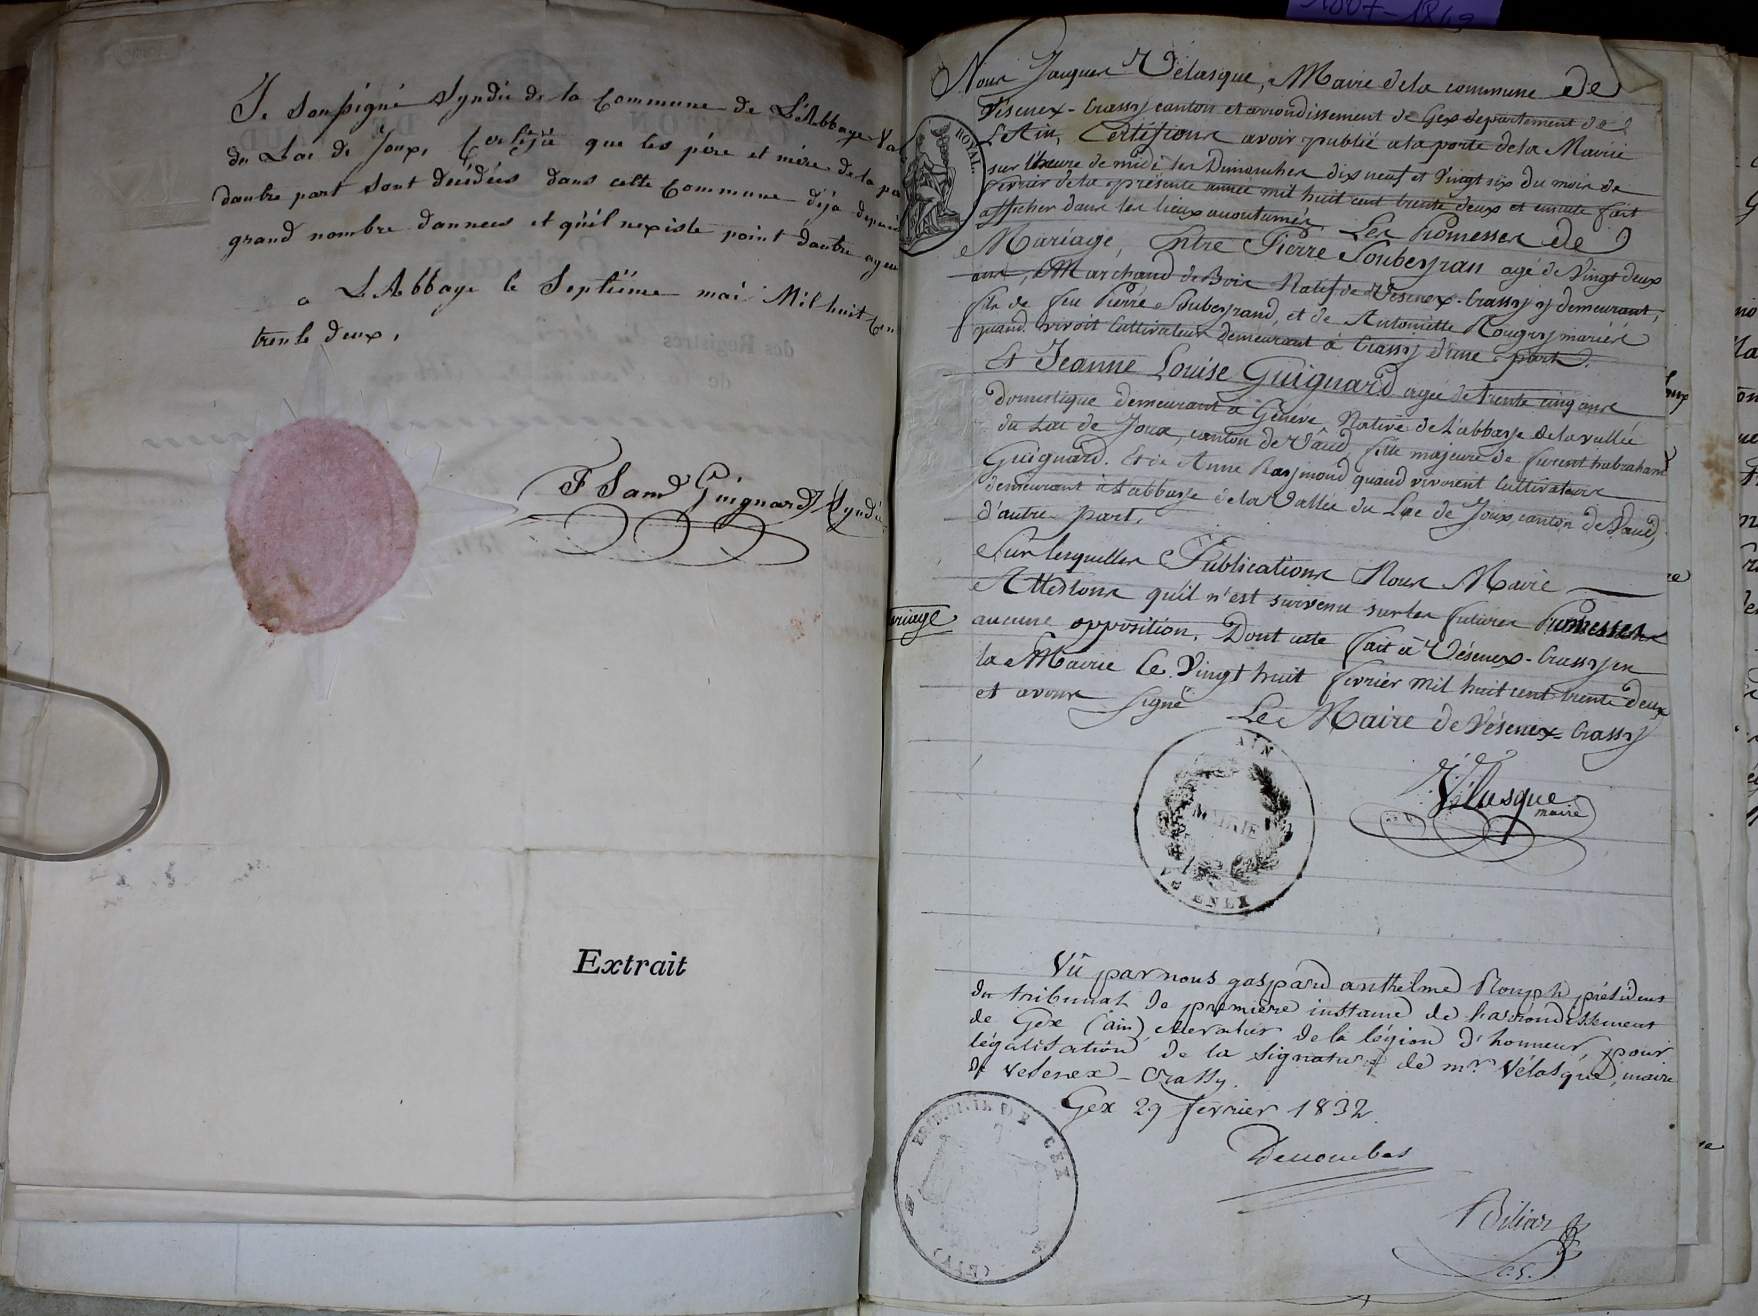 Je Soussigné Syndic de la Commune de L'Abbaye Va
du Lac de Joux, Certifie que les père et mère de la pa
dautre part sont décédées dans cette Commune déjà depuis
grand nombre dannees et qu'il nexiste point dautre ayeu
a L'Abbaye le Septième mai Mil huit Cen
trente deux,
F Saml Guignard Syndic
Extrait
1807-1849
Nous Jacques Vélasque, Maire de la commune de
Vésenex-Crassy canton et arrondissement de Gex département de
L'Ain, Certifions avoir publié a la porte de la Mairie
sur l'heure de midi les Dimanches dix neuf et Vingt six du mois de
février de la présente année mil huit cent trente deux et ensuite fait
afficher dans les lieux accoutumés Les Promesses de
Mariage, Entre Pierre Soubeyran agé de Vingt deux
ans, Marchand de Bois Natif de Vésenex-Crassy y demeurant,
fils de feu Pierre Soubeyrand, et de Antoinette Rougny mariés
quand vivoit Cultivateur demeurant a Crassy d'une part.
Et Jeanne Louise Guignard agée de trente cinq ans
domestique demeurant à Genève, Native de L'abbaye de la vallée
du Lac de Joux, canton de Vaud, fille majeure de furent habraham
Guignard. Et de Anne Raymond quand vivoient Cultivateurs
demeurant à L'abbaye de la Vallée du Lac de Joux, canton de Vaud,
d'autre part.
Sur lesquelles Publications Nous Maire
Attestons qu'il n'est survenu sur les futures Promesses
aucune opposition. Dont acte fait à Vésenex-Crassy en
la Mairie le Vingt huit février mil huit cent trente deux
et avons signé
Le Maire de Vésenex-Crassy
Vélasque
maire
MAIRIE
AIN
ROYAL
riage
Vû par nous gaspard anthelme Rouph président
du tribunal de première instance de l'arrondissement
de Gex (ain) chevalier de la légion d'honneur, pour
légalisation de la signature de mr. Vélasque, maire
de Vesenex-Crassy.
Gex 29 février 1832.
DE GEX